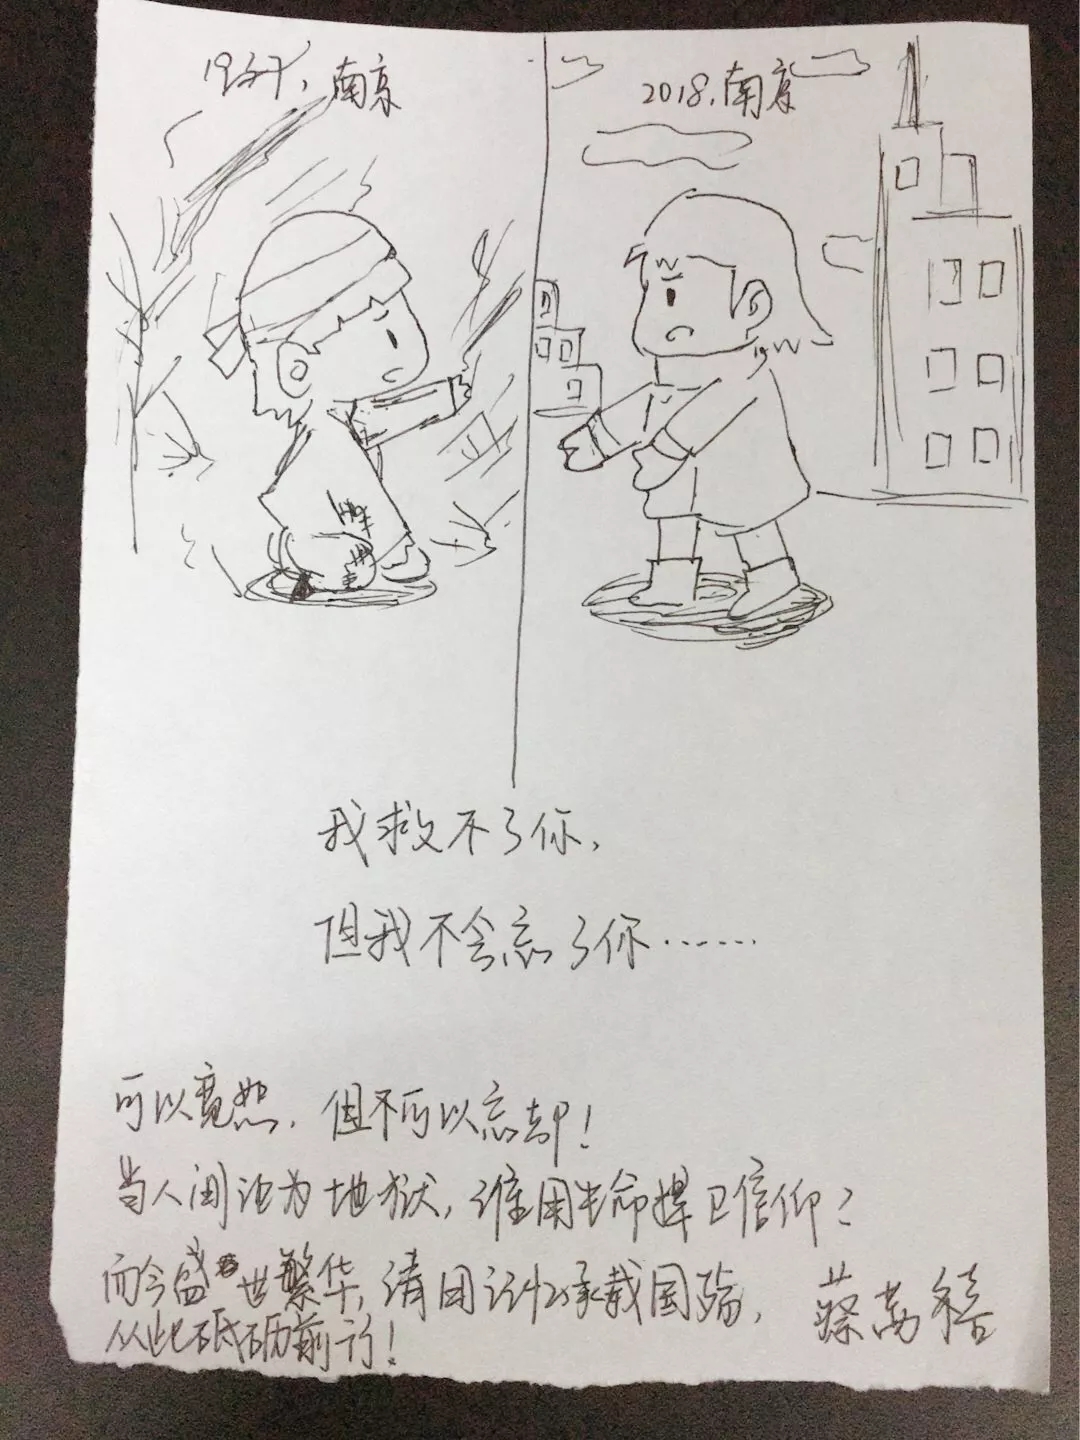 1937，南京
2018，南京
我救不了你，
但我不会忘了你……
可以宽恕，但不可以忘却！
当人间沦为地狱，谁用生命捍卫信仰？
而今盛世繁华，请用记忆承载国殇，
从此砥砺前行！
蔡